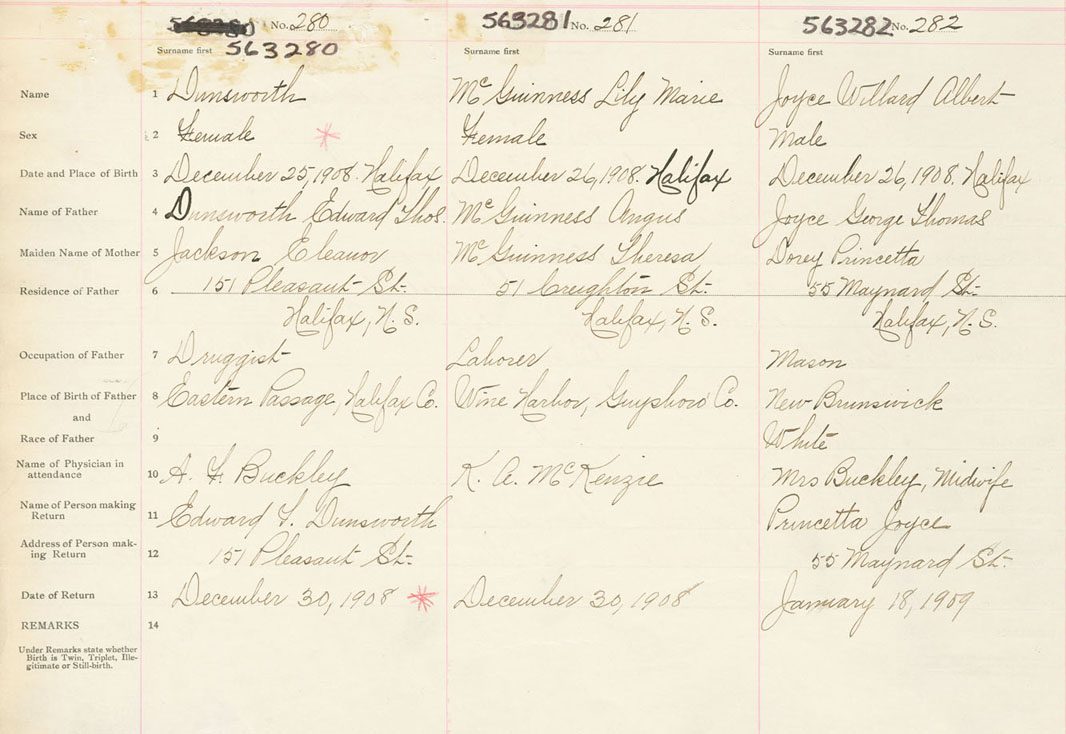 No. 280
563280
563281 No. 281
563282 No. 282
Surname first
Surname first
Surname first
Name 1 Dunsworth McGuinness Lily Marie Joyce Willard Albert
Sex 2 Female Female Male
Date and Place of Birth 3 December 25, 1908. Halifax December 26, 1908. Halifax December 26, 1908. Halifax
Name of Father 4 Dunsworth Edward Thos. McGuinness Angus Joyce George Thomas
Maiden Name of Mother 5 Jackson Eleanor McGuinness Theresa Dorey Princetta
Residence of Father 6 151 Pleasant St. 51 Creighton St. 55 Maynard St.
Halifax, N.S. Halifax, N.S. Halifax, N.S.
Occupation of Father 7 Druggist Laborer Mason
Place of Birth of Father 8 Eastern Passage, Halifax Co. Wine Harbor, Guysboro Co. New Brunswick
and
Race of Father 9 White
Name of Physician in
attendance 10 A. F. Buckley K. A. McKenzie Mrs Buckley, Midwife
Name of Person making
Return 11 Edward T. Dunsworth Princetta Joyce
Address of Person mak-
ing Return 12 151 Pleasant St. 55 Maynard St.
Date of Return 13 December 30, 1908 December 30, 1908 January 18, 1909
REMARKS 14
Under Remarks state whether
Birth is Twin, Triplet, Ille-
gitimate or Still-birth.